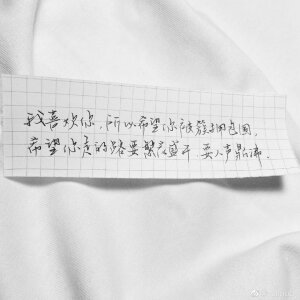 我喜欢你，所以希望你被簇拥包围，
希望你走的路要繁花盛开，要人声鼎沸.